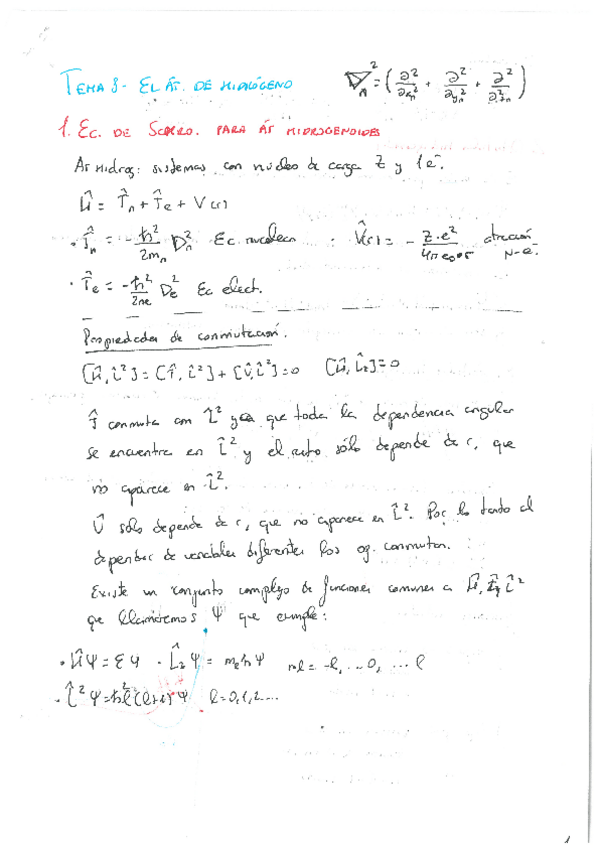 TEMA 3- EL ÁT. DE HIDRÓGENO
∇²ₙ = (∂²/∂xₙ² + ∂²/∂yₙ² + ∂²/∂zₙ²)
1. EC. DE SCHRO. PARA ÁT HIDROGENOIDES
At hidrog: sistemas con núcleo de carga Z y 1e⁻.
Ĥ = T̂ₙ + T̂e + V(r)
· T̂ₙ = -ħ²/2mₙ ∇ₙ² Ec nuclear · V̂(r) = - Z·e²/4πε₀·r atracción N-e.
· T̂e = -ħ²/2me ∇e² Ec elect.
Propiedades de conmutación.
[Ĥ, L̂²] = [T̂, L̂²] + [V̂, L̂²] = 0 [Ĥ, L̂z] = 0
T̂ conmuta con L̂² ya que toda la dependencia angular
se encuentra en L̂² y el resto sólo depende de r, que
no aparece en L̂².
V̂ sólo depende de r, que no aparece en L̂². Por lo tanto al
depender de variables diferentes los op. conmutan.
Existe un conjunto complejo de funciones comunes a Ĥ, L̂z L̂²
que llamaremos Ψ que cumple:
· ĤΨ = EΨ · L̂zΨ = mₗħΨ ml = -l, ... 0, ... l
· L̂²Ψ = ħ²l(l+1)Ψ l = 0, 1, 2 ...